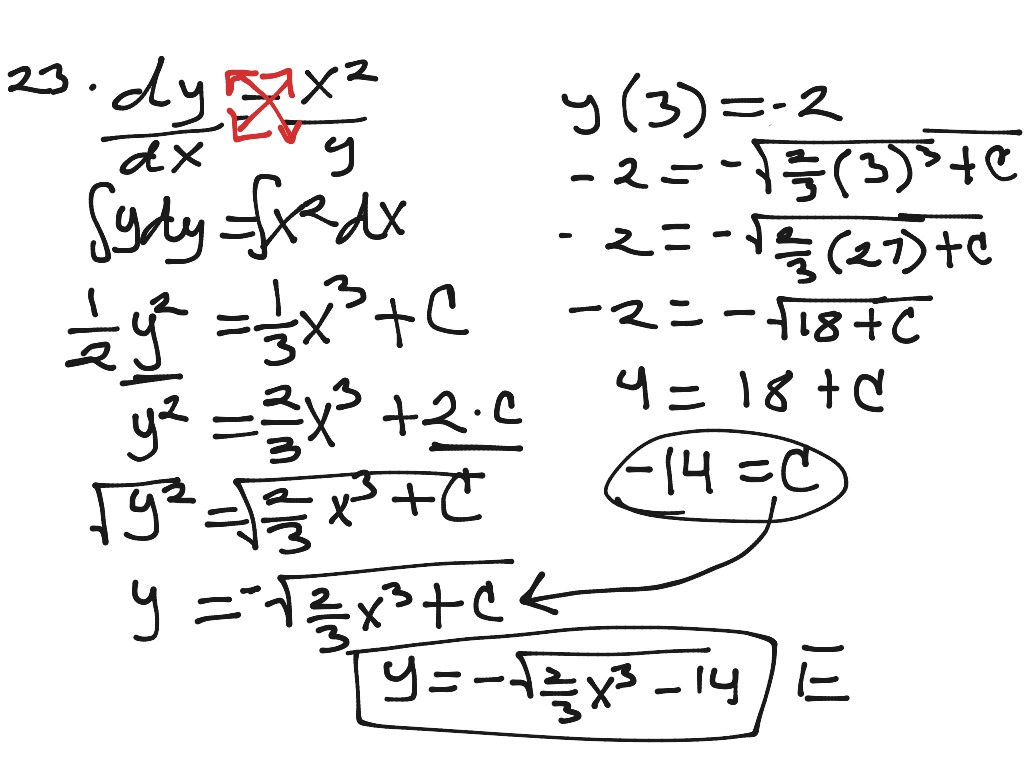 23. dy/dx = x²/y
∫ydy = ∫x²dx
1/2 y² = 1/3 x³ + C
y² = 2/3 x³ + 2·C
√y² = √(2/3 x³ + C)
y = -√(2/3 x³ + C)
y(3) = -2
-2 = -√(2/3 (3)³ + C)
-2 = -√(2/3 (27) + C)
-2 = -√(18 + C)
4 = 18 + C
-14 = C
y = -√(2/3 x³ - 14) E